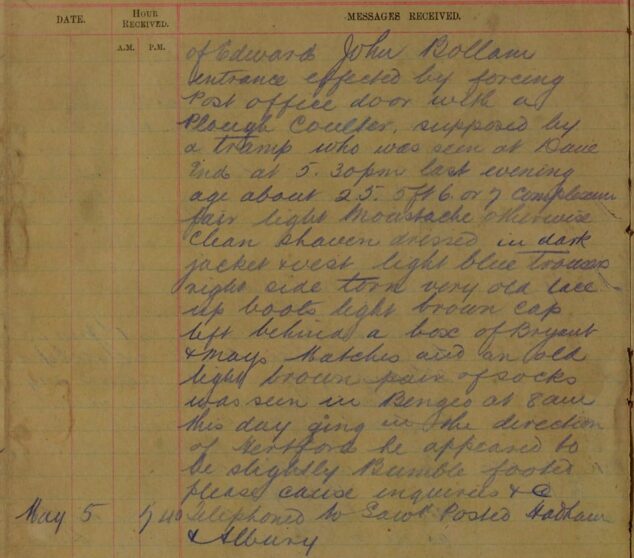 DATE. HOUR RECEIVED. MESSAGES RECEIVED.
A.M. P.M.
of Edward John Bollam
entrance effected by forcing
Post office door with a
Plough Coulter, supposed by
a tramp who was seen at Dane
End at 5.30pm last evening
age about 25. 5ft 6. or 7 complexion
fair light Moustache otherwise
Clean shaven dressed in dark
jacket & vest light blue trousers
right side torn very old lace
up boots light brown cap
left behind a box of Bryant
& Mays Matches and an old
light brown pair of socks
was seen in Bengeo at 8am
this day going in the direction
of Hertford he appeared to
be slightly Bumble footed
please cause inquiries & C
May 5 7 40 telephoned to Saw. Posted Hadham
& Albury